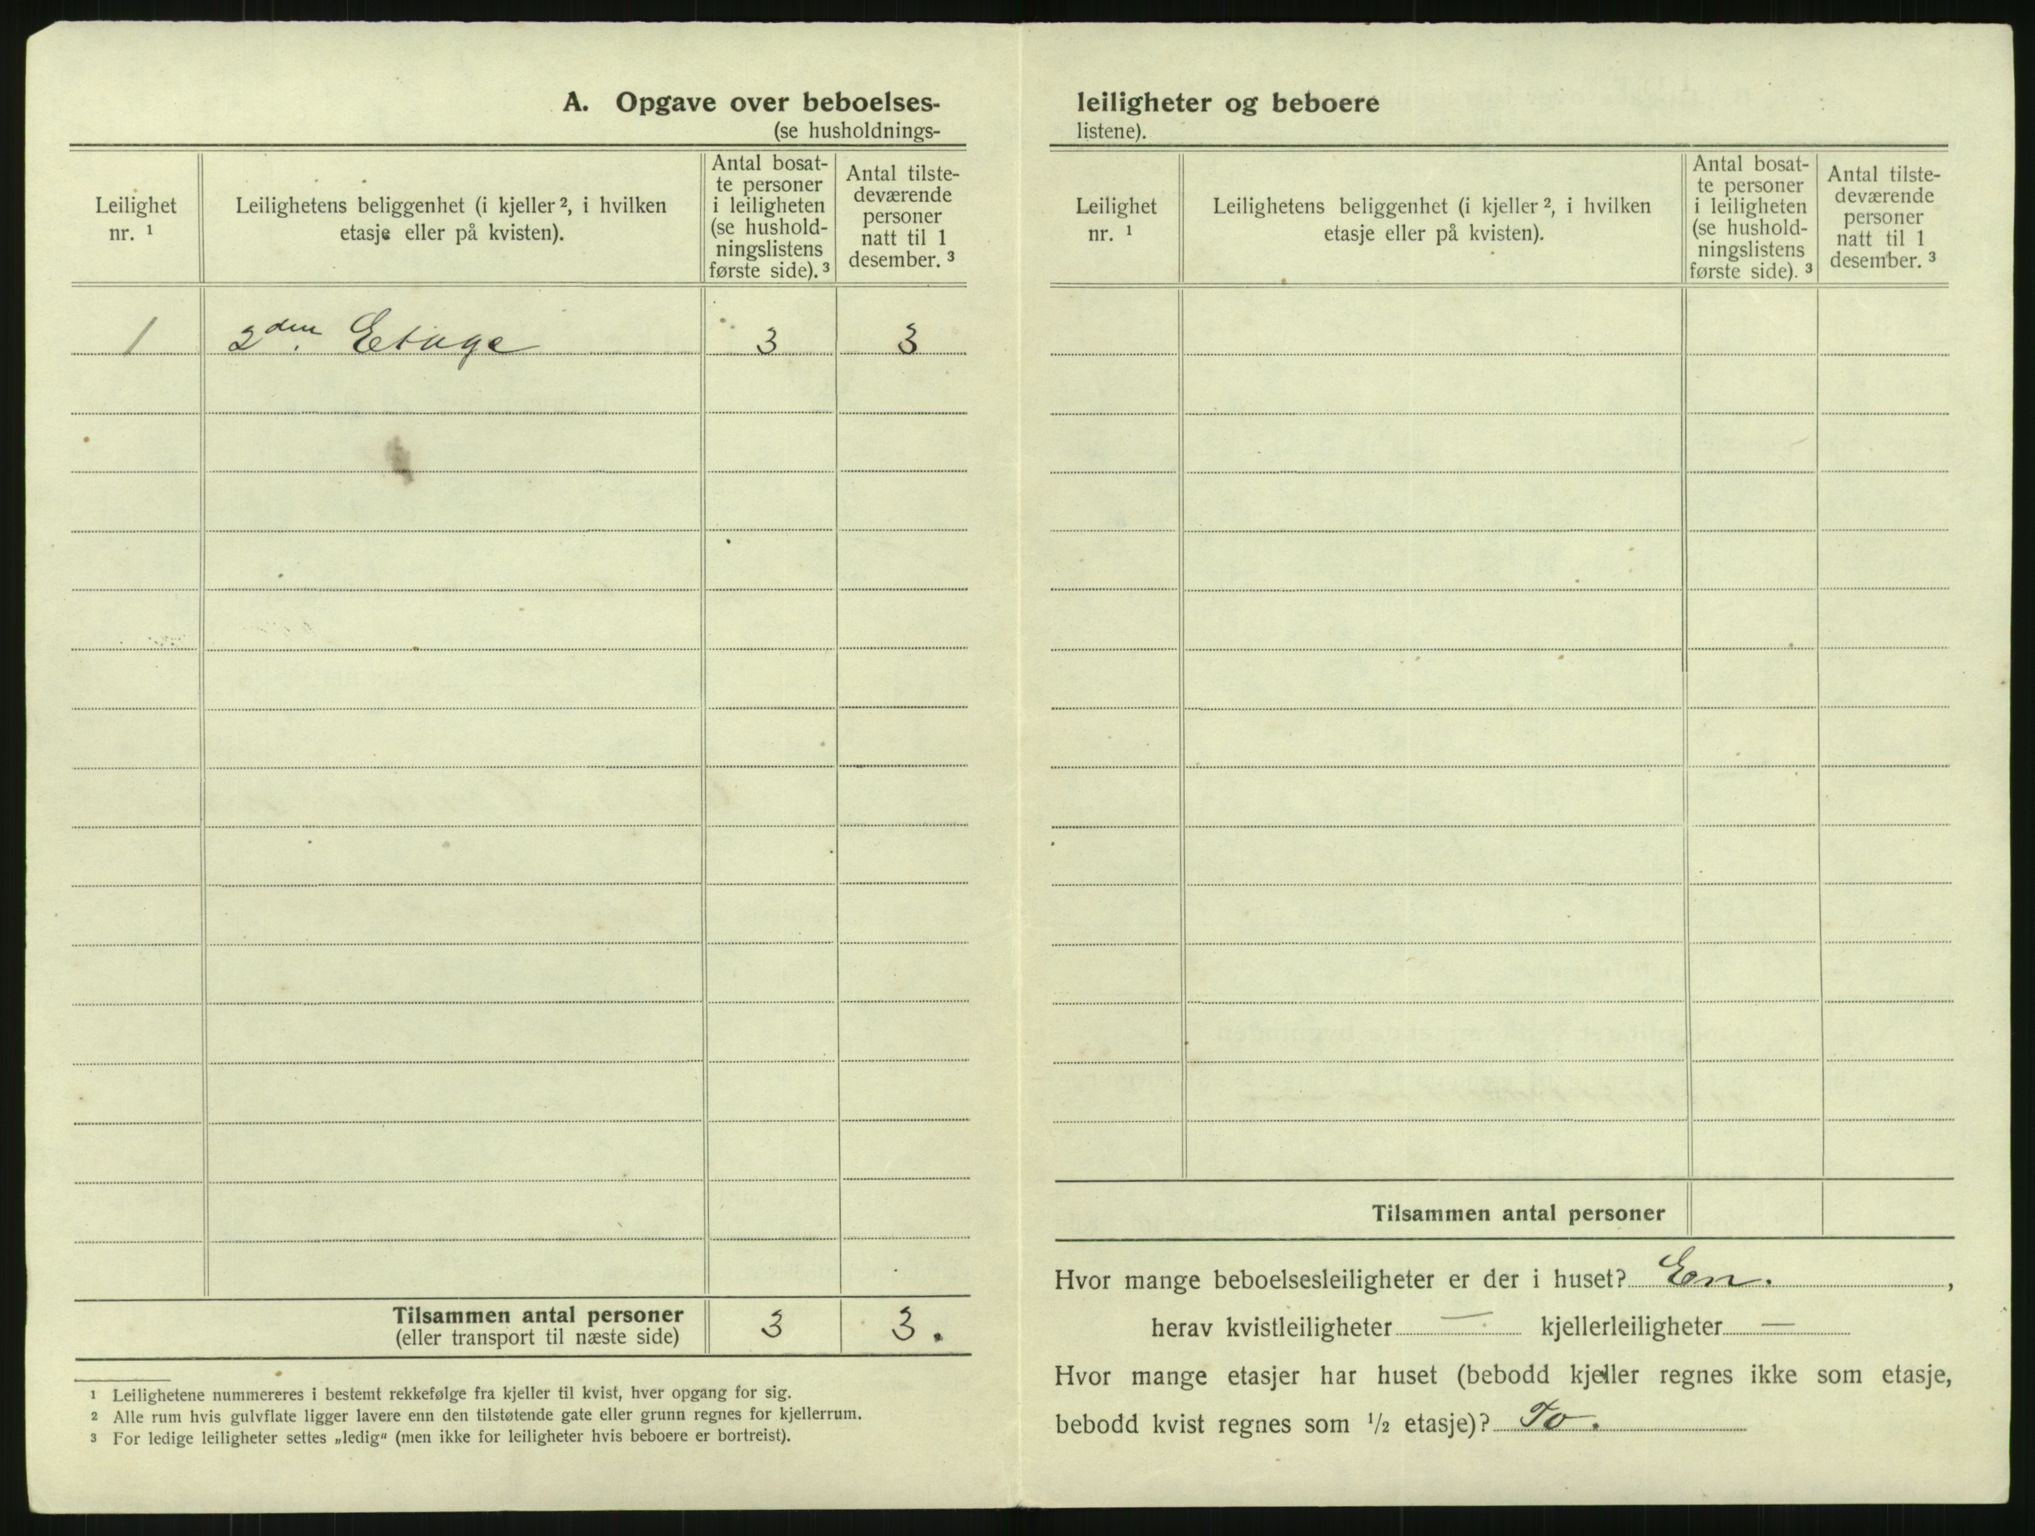 A. Opgave over beboelses-
(se husholdnings-
Leilighet nr. ¹
Leilighetens beliggenhet (i kjeller ², i hvilken etasje eller på kvisten).
Antal bosat-
te personer
i leiligheten
(se hushold-
ningslistens
første side). ³
Antal tilste-
deværende
personer
natt til 1
desember. ³
1 2den. Etage 3 3
Tilsammen antal personer 3 3.
(eller transport til næste side)
¹ Leilighetene nummereres i bestemt rekkefølge fra kjeller til kvist, hver opgang for sig.
² Alle rum hvis gulvflate ligger lavere enn den tilstøtende gate eller grunn regnes for kjellerrum.
³ For ledige leiligheter settes „ledig“ (men ikke for leiligheter hvis beboere er bortreist).
leiligheter og beboere
listene).
Leilighet nr. ¹
Leilighetens beliggenhet (i kjeller ², i hvilken etasje eller på kvisten).
Antal bosat-
te personer
i leiligheten
(se hushold-
ningslistens
første side). ³
Antal tilste-
deværende
personer
natt til 1
desember. ³
Tilsammen antal personer
Hvor mange beboelsesleiligheter er der i huset? En. ,
herav kvistleiligheter — kjellerleiligheter —
Hvor mange etasjer har huset (bebodd kjeller regnes ikke som etasje,
bebodd kvist regnes som ½ etasje)? To.